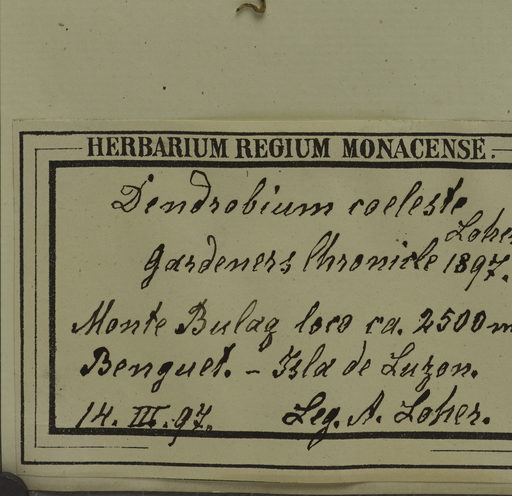 HERBARIUM REGIUM MONACENSE.
Dendrobium coeleste
Loher
Gardeners Chronicle 1897.
Monte Bulag loco ca. 2500 m
Benguet. - Isla de Luzon.
14. III. 97. Leg. A. Loher.